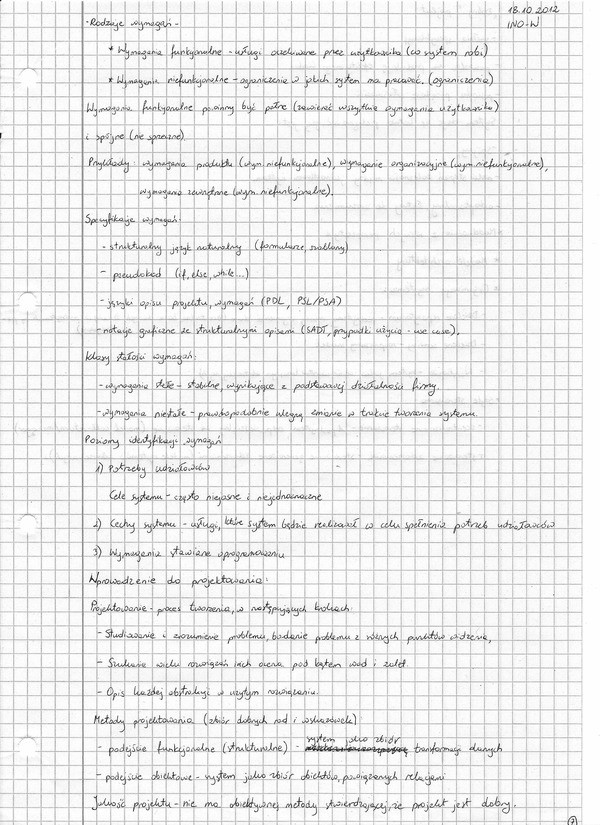 18.10.2012
INO-W
-Rodzaje wymagań-
* Wymagania funkcjonalne - usługi oczekiwane przez użytkownika (co system robi)
* Wymagania niefunkcjonalne - ograniczenia w jakich system ma pracować. (ograniczenia)
Wymagania funkcjonalne powinny być pełne (zawierać wszystkie wymagania użytkownika)
i spójne (nie sprzeczne).
Przykłady: wymagania produktu (wym. niefunkcjonalne), wymaganie organizacyjne (wym. niefunkcjonalne),
wymagania zewnętrzne (wym. niefunkcjonalne).
Specyfikacje wymagań:
- strukturalny język naturalny (formularze, szablony)
- pseudokod (if, else, while...)
- języki opisu projektu, wymagań (PDL, PSL/PSA)
- notacje graficzne ze strukturalnymi opisami (SADT, przypadki użycia - use case).
Klasy stałości wymagań:
- wymagania stałe - stabilne, wynikające z podstawowej działalności firmy.
- wymagania niestałe - prawdopodobnie ulegną zmianie w trakcie tworzenia systemu.
Poziomy identyfikacji wymagań
1) Potrzeby udziałowców
Cele systemu - często niejasne i niejednoznaczne
2) Cechy systemu - usługi, które system będzie realizował w celu spełnienia potrzeb udziałowców
3) Wymagania stawiane oprogramowaniu
Wprowadzenie do projektowania:
Projektowanie - proces tworzenia, w następujących krokach:
- Studiowanie i zrozumienie problemu, badanie problemu z różnych punktów widzenia,
- Szukanie wielu rozwiązań i ich ocena pod kątem wad i zalet.
- Opis każdej abstrakcji w użytym rozwiązaniu.
Metody projektowania (zbiór dobrych rad i wskazówek)
- podejście funkcjonalne (strukturalne) - system jako zbiór transformacji danych
- podejście obiektowe - system jako zbiór obiektów, powiązanych relacjami
Jakość projektu - nie ma obiektywnej metody stwierdzającej, że projekt jest dobry.
7